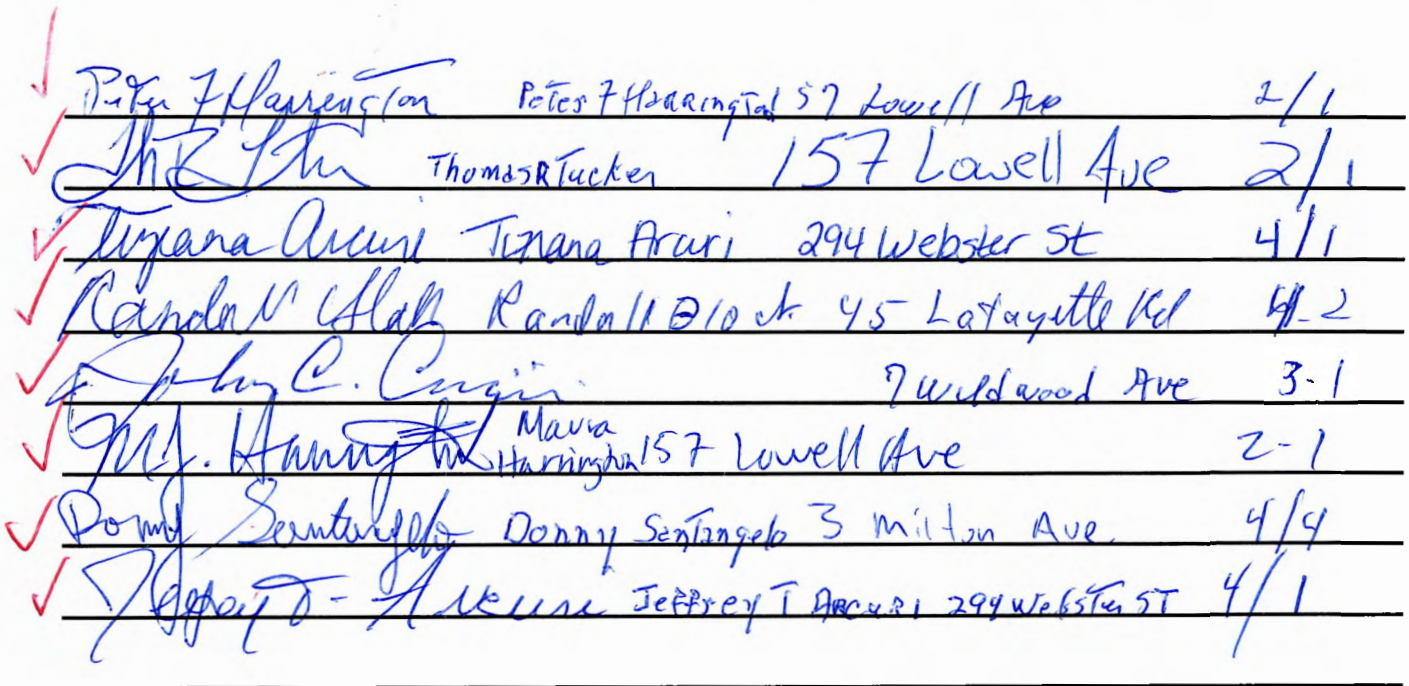 Peter F Harrington Peter F Harrington 57 Lowell Ave 2/1
Thomas R Tucker 157 Lowell Ave 2/1
Tiziana Arcuri Tiziana Arcuri 294 Webster St 4/1
Randall Block Randall Block 45 Lafayette Rd 4-2
John C. 7 Wildwood Ave 3-1
M.J. Harrington Maura Harrington 157 Lowell Ave 2-1
Donny Santangelo Donny Santangelo 3 Milton Ave. 4/4
Jeffrey T- Arcuri Jeffrey T Arcuri 294 Webster ST 4/1